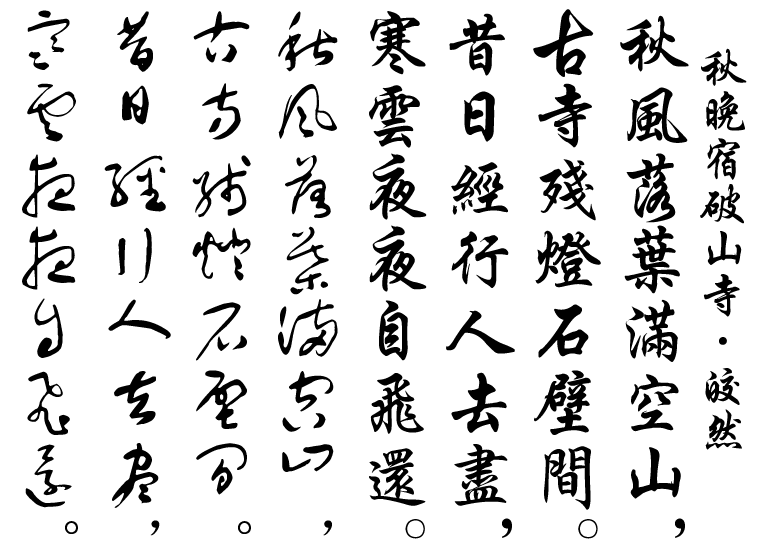 秋晚宿破山寺·皎然
秋風落葉滿空山，
古寺殘燈石壁間。
昔日經行人去盡，
寒雲夜夜自飛還。
秋風落葉滿空山，
古寺殘燈石壁間。
昔日經行人去盡，
寒雲夜夜自飛還。